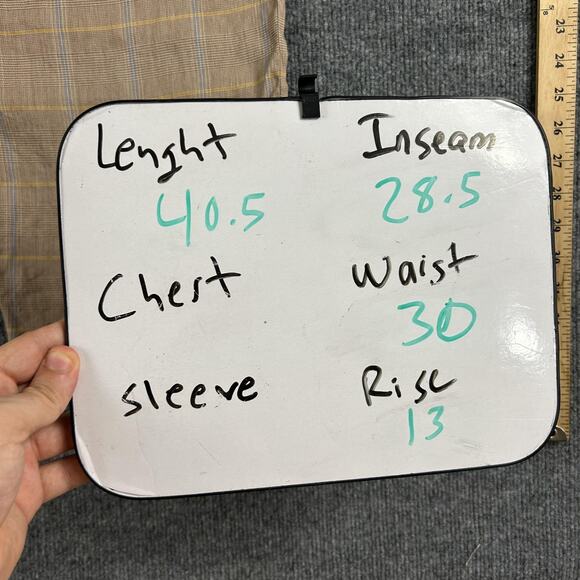 Lenght
40.5
Inseam
28.5
Chest
Waist
30
sleeve
Rise
13
23
24
25
26
27
28
29
30
31